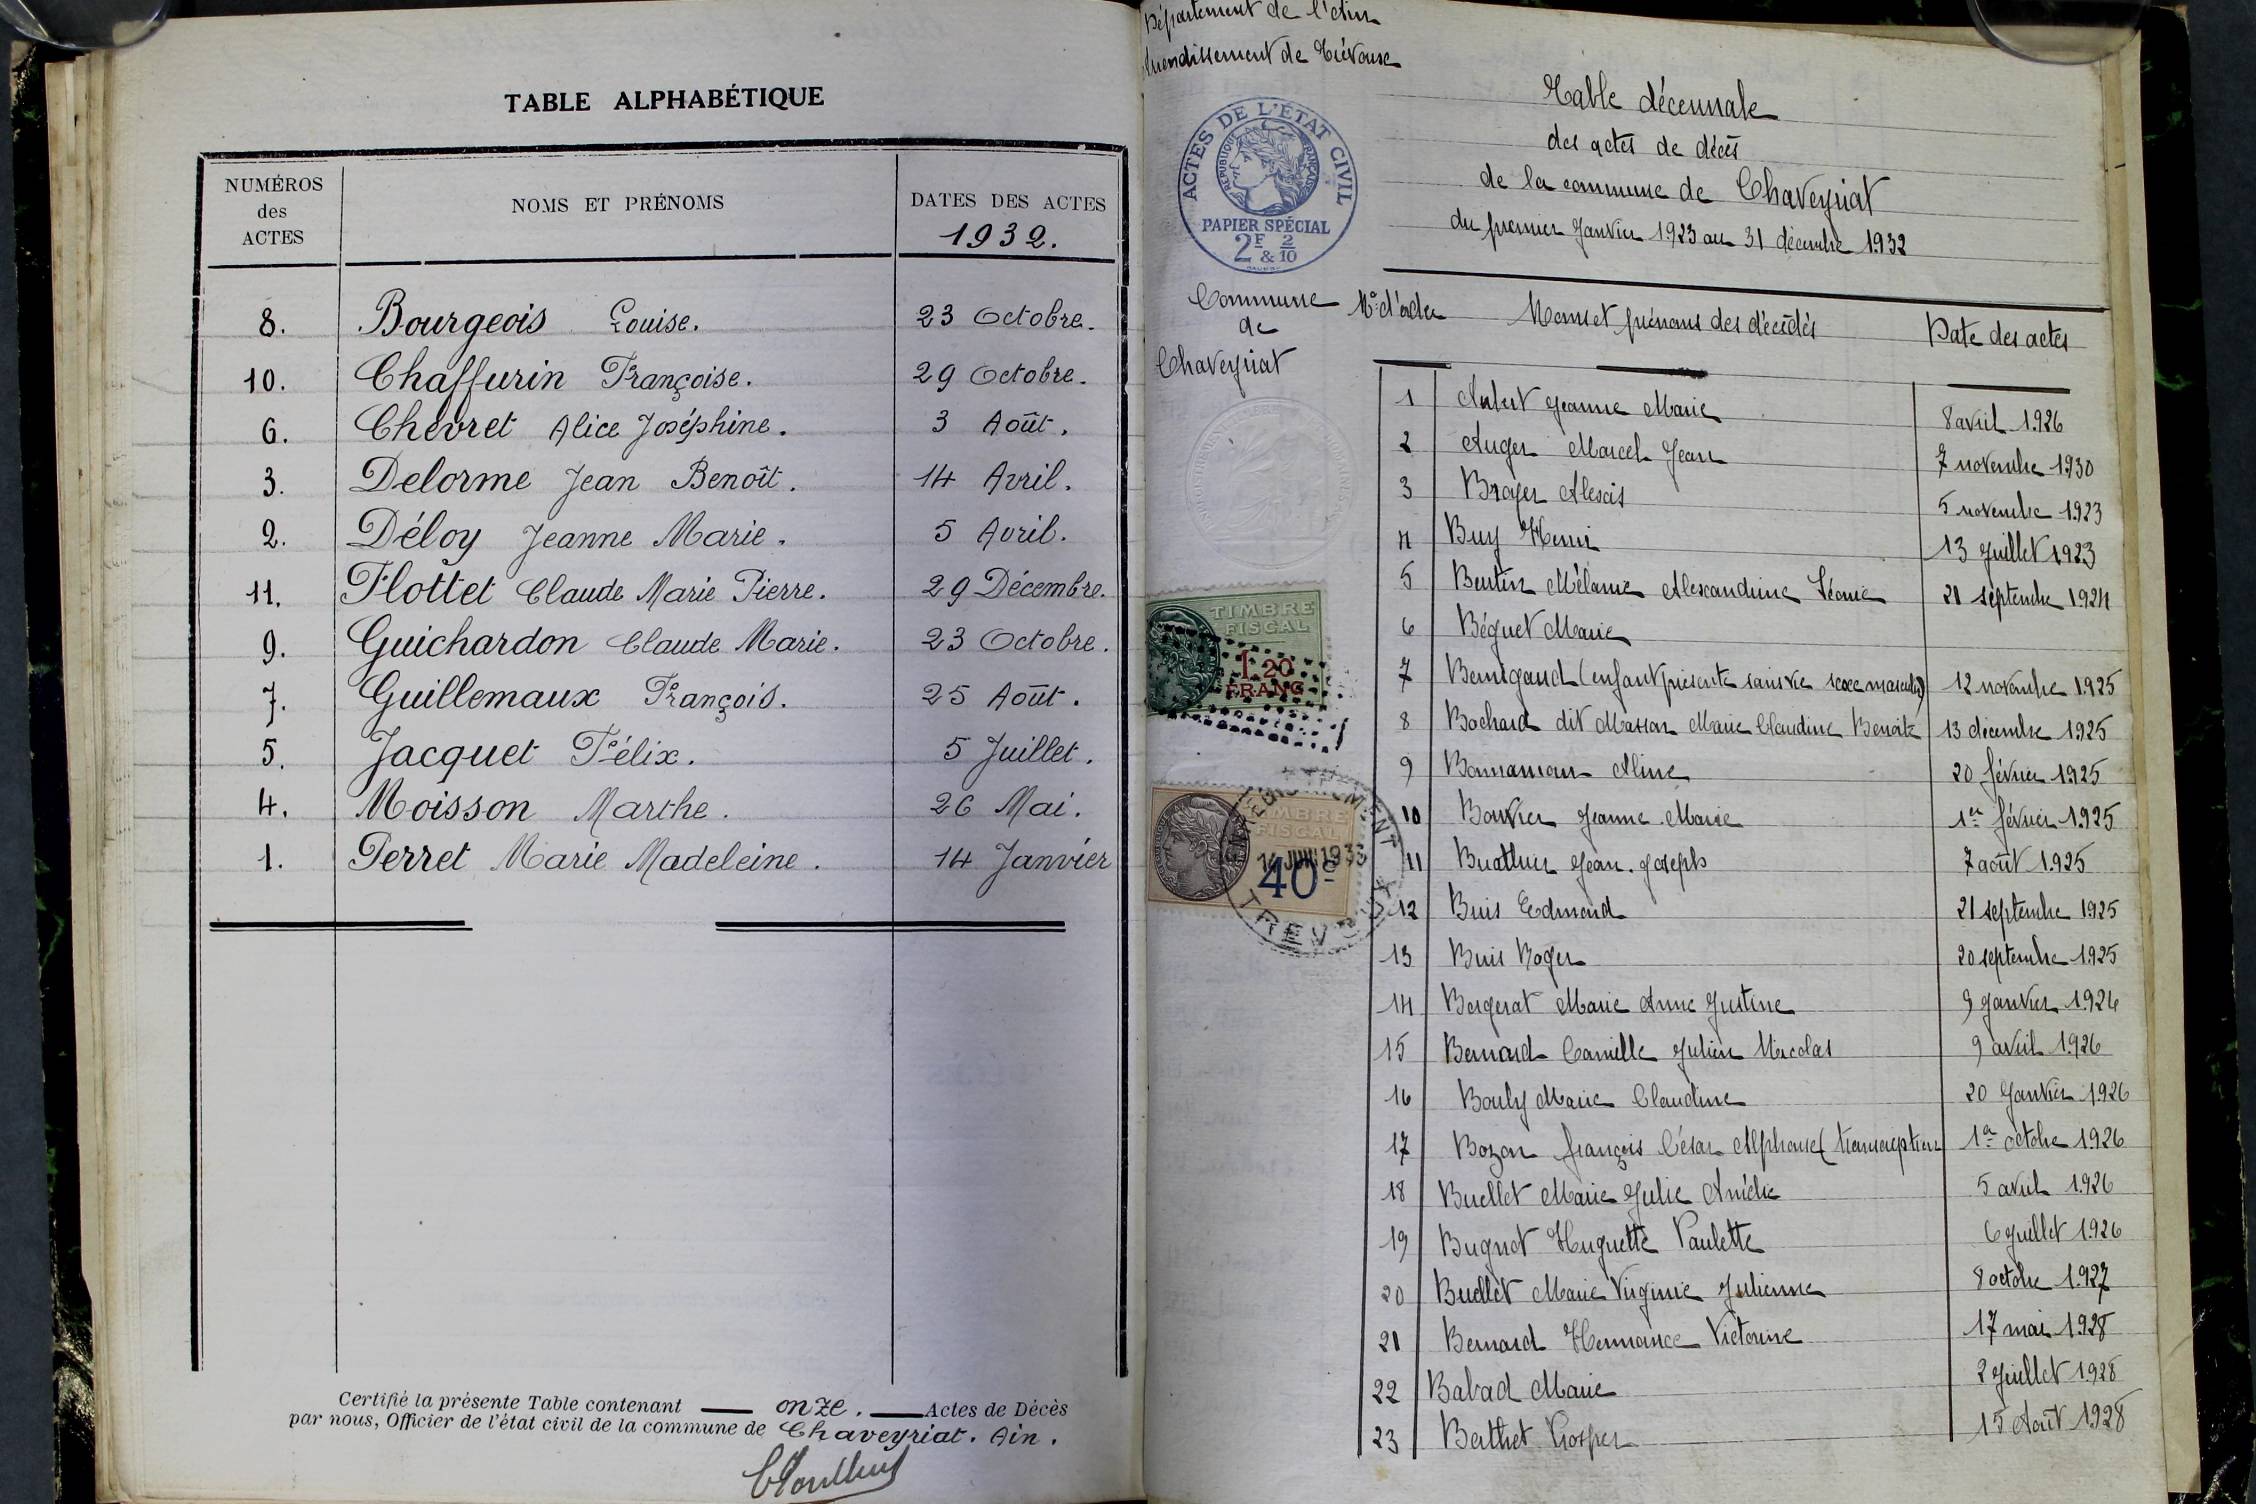 TABLE ALPHABÉTIQUE
NUMÉROS des ACTES NOMS ET PRÉNOMS DATES DES ACTES
1932.
8. Bourgeois Louise. 23 Octobre.
10. Chaffurin Françoise. 29 Octobre.
6. Chevret Alice Joséphine. 3 Août.
3. Delorme Jean Benoît. 14 Avril.
2. Déloy Jeanne Marie. 5 Avril.
11. Flottet Claude Marie Pierre. 29 Décembre.
9. Guichardon Claude Marie. 23 Octobre.
7. Guillemaux François. 25 Août.
5. Jacquet Félix. 5 Juillet.
4. Moisson Marthe. 26 Mai.
1. Perret Marie Madeleine. 14 Janvier
Certifié la présente Table contenant onze. Actes de Décès
par nous, Officier de l'état civil de la commune de Chaveyriat. Ain.
Département de l'Ain
Arrondissement de Trévoux
ACTES DE L'ÉTAT CIVIL
RÉPUBLIQUE FRANÇAISE
PAPIER SPÉCIAL
2F & 2/10
Table décennale
des actes de décès
de la commune de Chaveyriat
du premier Janvier 1923 au 31 décembre 1932
Commune
de
Chaveyriat
TIMBRE
FISCAL
1.20
FRANC
TIMBRE
FISCAL
40c
ENREGISTREMENT
14 JUIN 1933
TREVOUX
N° d'actes Noms et prénoms des décédés Date des actes
1 Aubert Jeanne Marie 8 avril 1926
2 Auger Marcel Jean 7 novembre 1930
3 Broyer Alexis 5 novembre 1923
4 Buy Henri 13 Juillet 1923
5 Bertin Mélanie Alexandrine Léonie 21 septembre 1924
6 Béguet Marie
7 Bernigaud (enfant présenté sans vie sexe masculin) 12 novembre 1925
8 Bochard dit Masson Marie Claudine Benoite 13 décembre 1925
9 Bonnamour Aline 20 février 1925
10 Bouvier Jeanne Marie 1er février 1925
11 Buathier Jean Joseph 7 août 1925
12 Buis Edmond 21 septembre 1925
13 Buis Roger 20 septembre 1925
14 Bergerat Marie Anne Justine 9 Janvier 1926
15 Bernard Camille Julien Nicolas 9 avril 1926
16 Bouly Marie Claudine 20 Janvier 1926
17 Bozon François César Alphonse (transcription 1er octobre 1926
18 Buellet Marie Julie Amélie 5 avril 1926
19 Bugnot Huguette Paulette 6 Juillet 1926
20 Buellet Marie Virginie Julienne 8 octobre 1927
21 Bernard Hermance Victorine 17 mai 1928
22 Babad Marie 2 Juillet 1928
23 Berthet Prosper 15 Août 1928